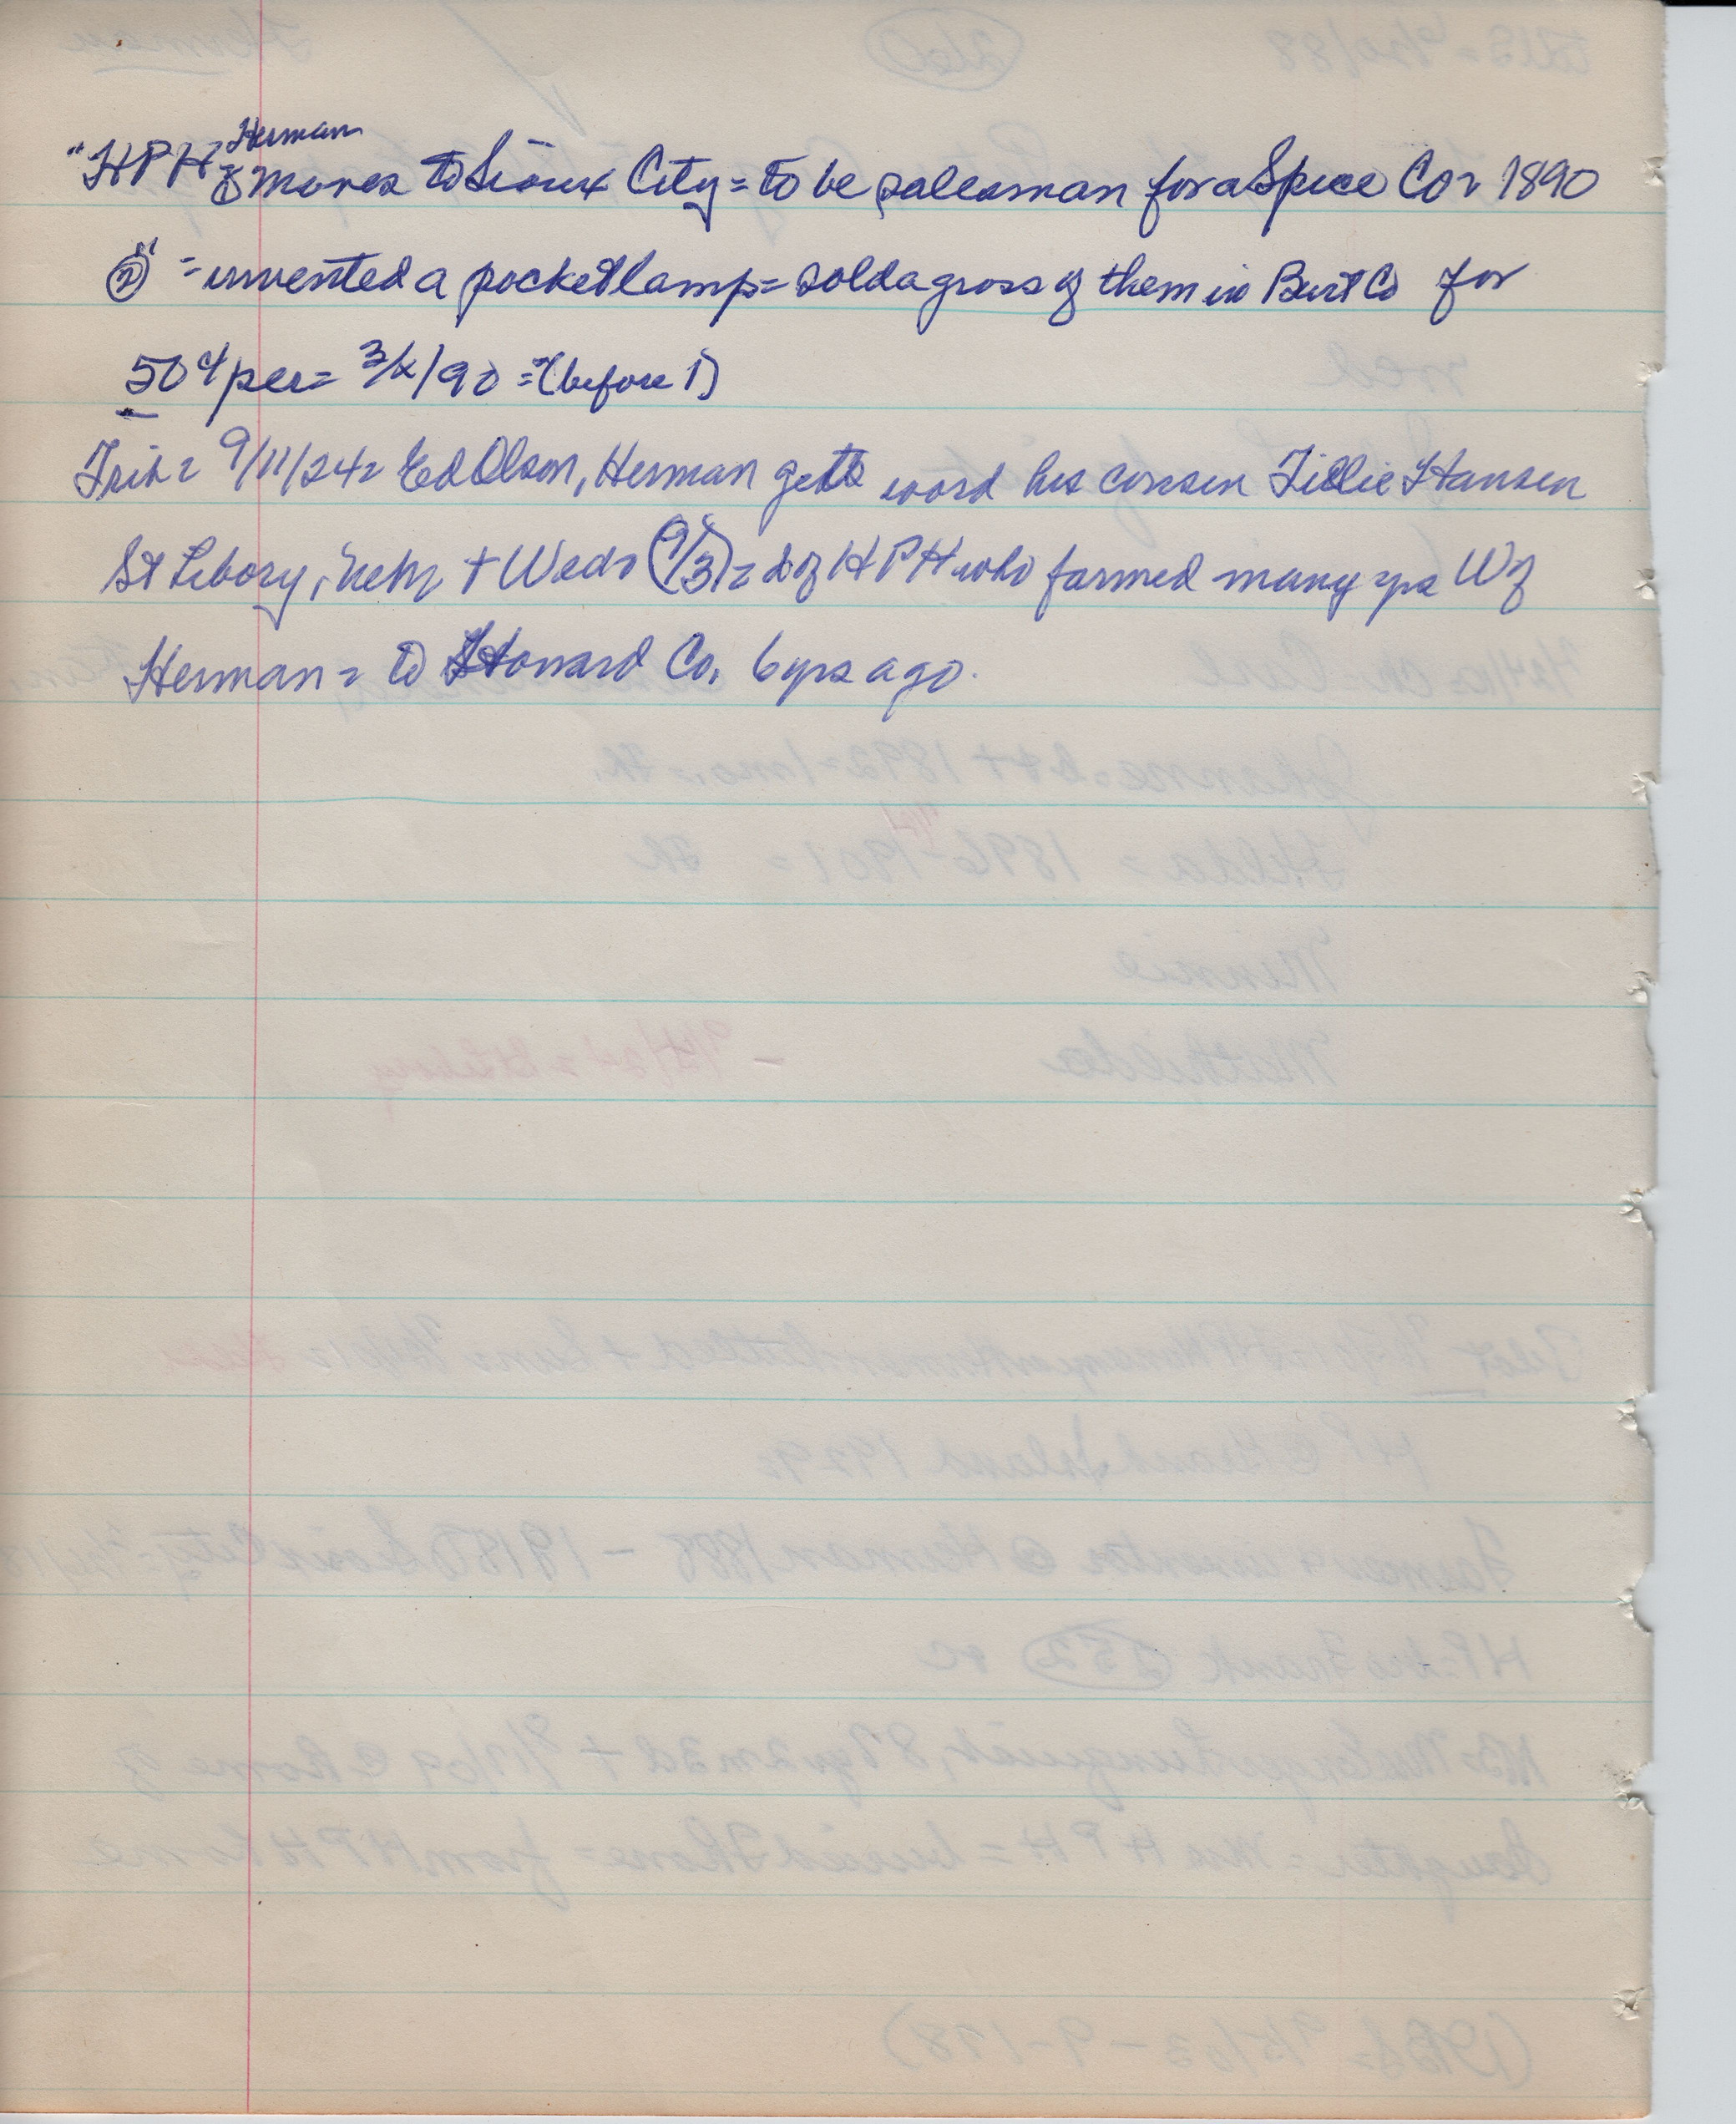 Herman
"HPH = moves to Sioux City = to be salesman for a Spice Co = 1890
② " = invented a pocket lamp = sold a gross of them in Burt Co for
50¢ per = 3/ /90 = (before 1)
Trib = 9/11/24 = Ed Olson, Herman gets word his cousin Tillie Hansen
St Libory, Nebr + Weds (9/3) = d of HPH who farmed many yrs W of
Herman = to Howard Co. 6 yrs ago.